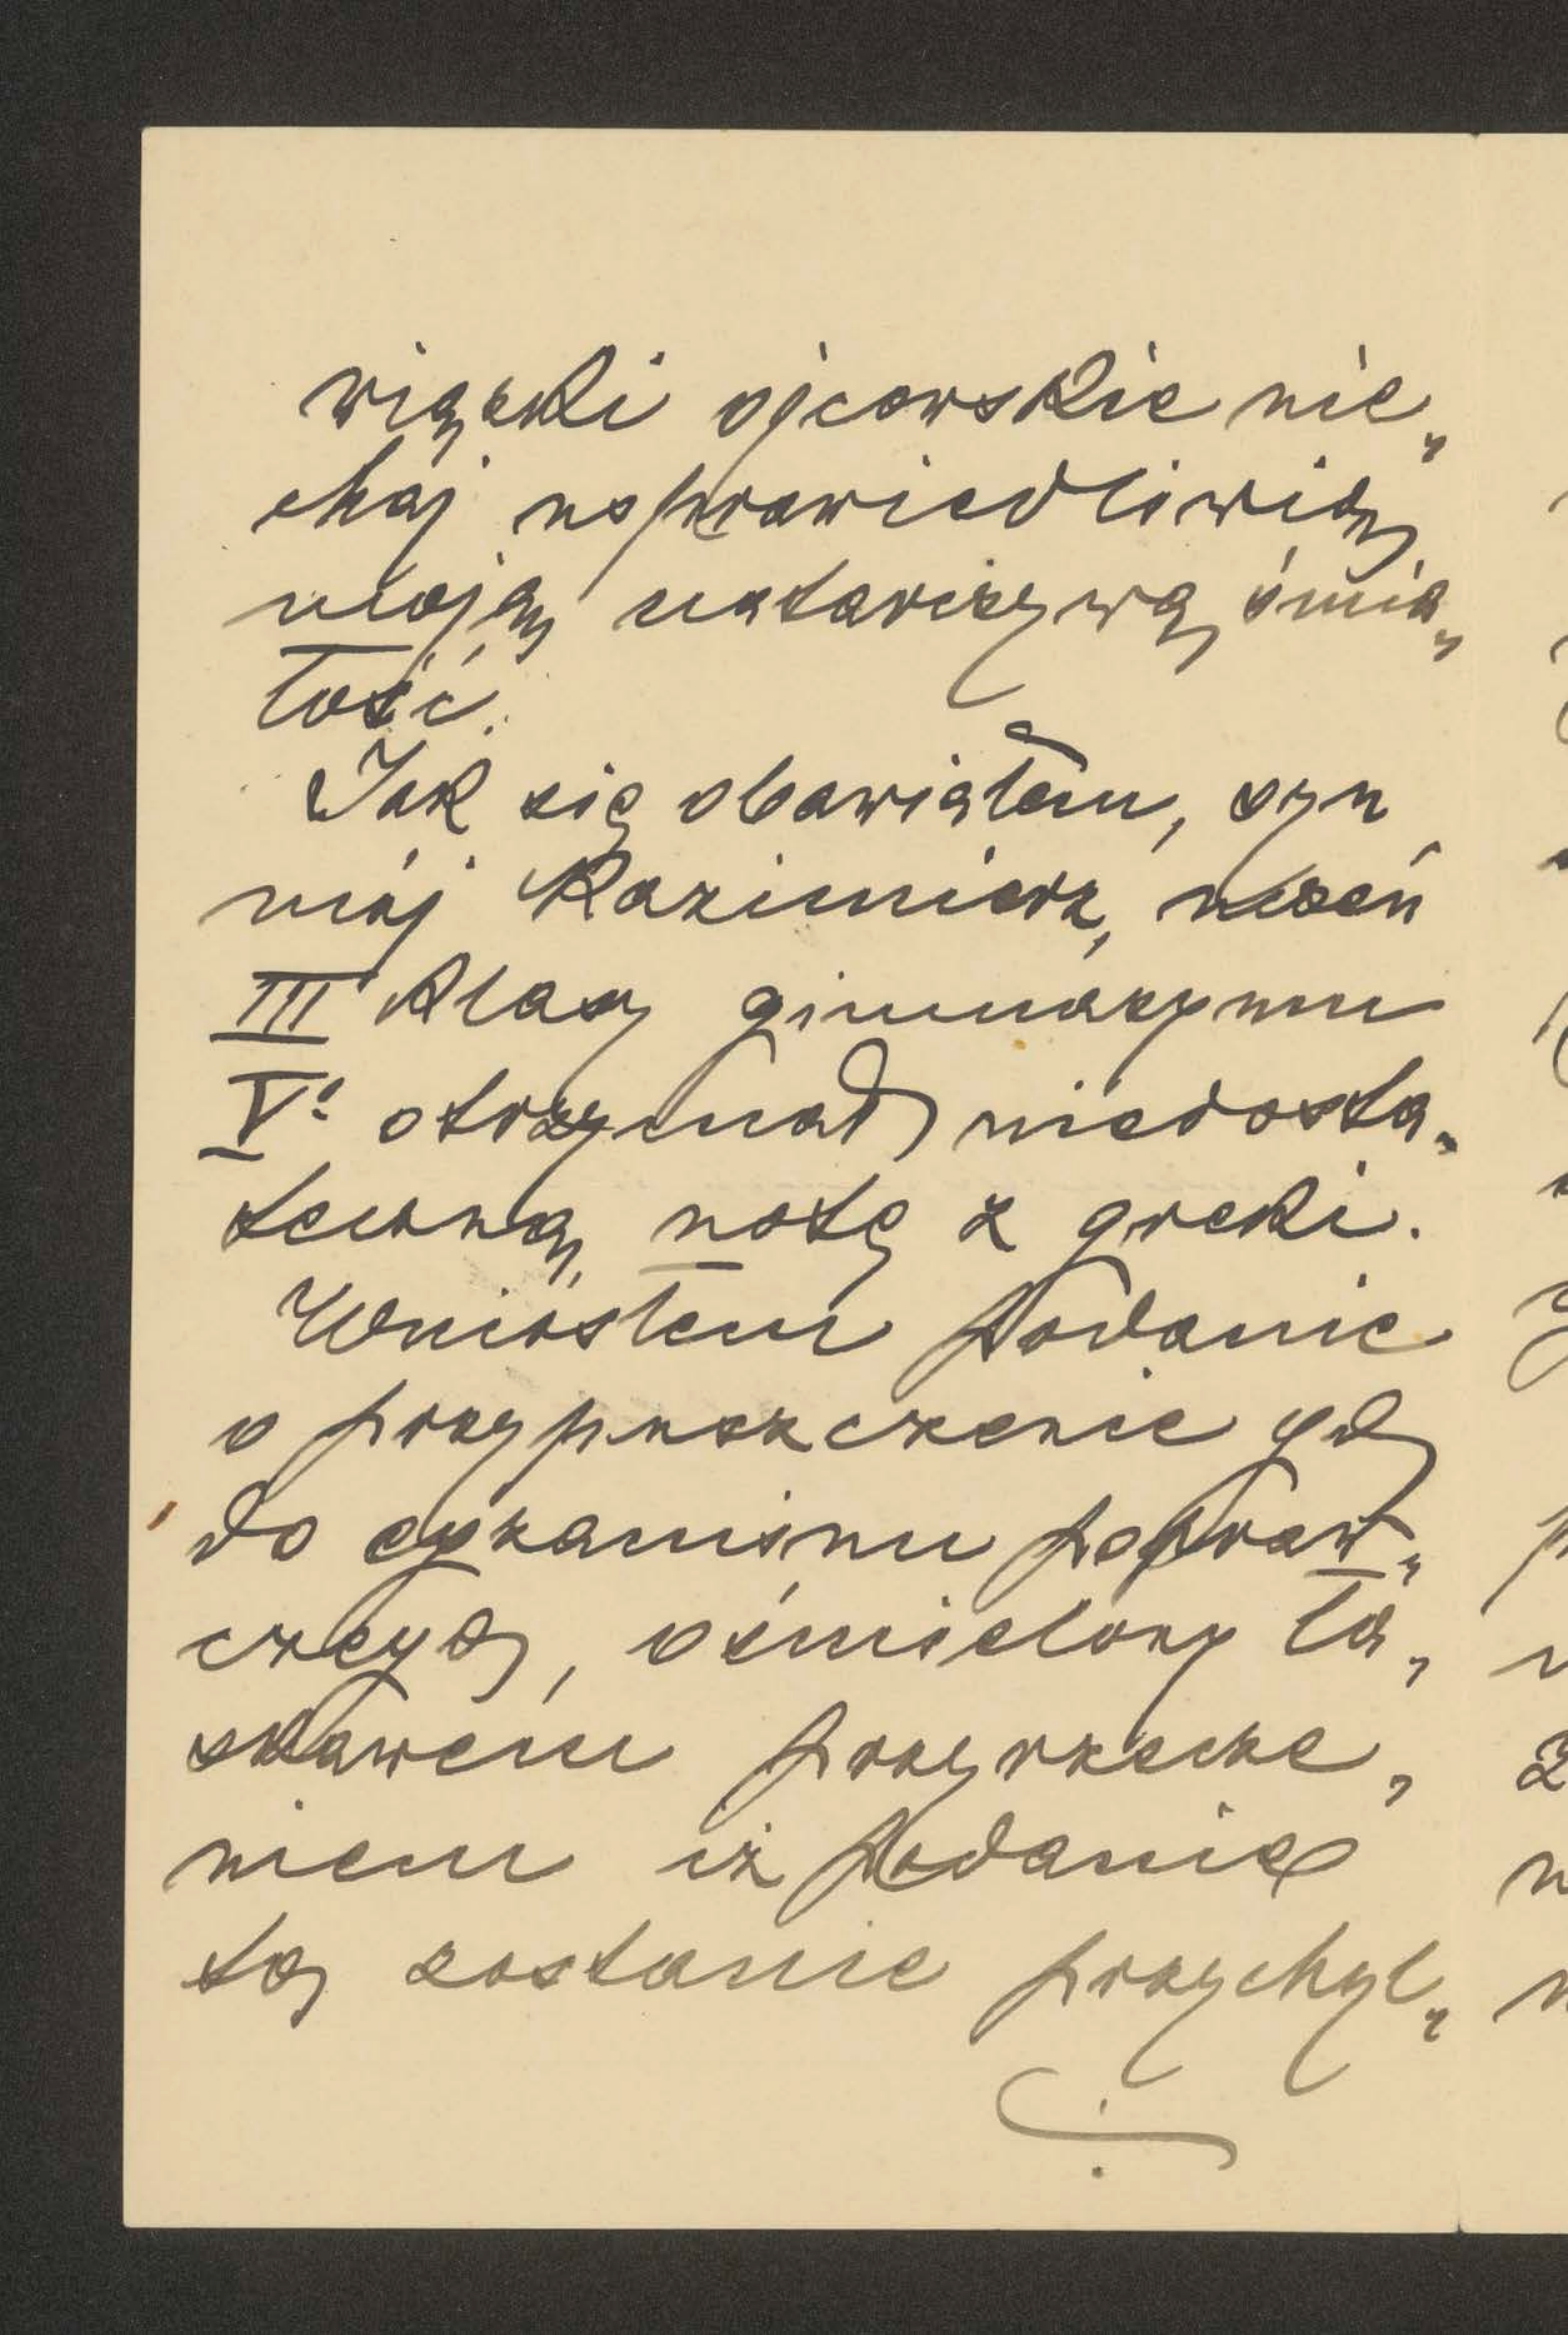 wiązki ojcowskie nie„
chaj usprawiedliwią
moją natarczywą śmia„
łość.
Jak się obawiałem, syn
mój Kazimierz, uczeń
III klasy gimnazyum
V: otrzymał niedosta„
teczną notę z greki.
Wniosłem podanie
o przypuszczenie go
do egzaminu popraw„
czego, ośmielony ła„
skawem przyrzecze„
niem iż podanie
to zostanie przychyl„